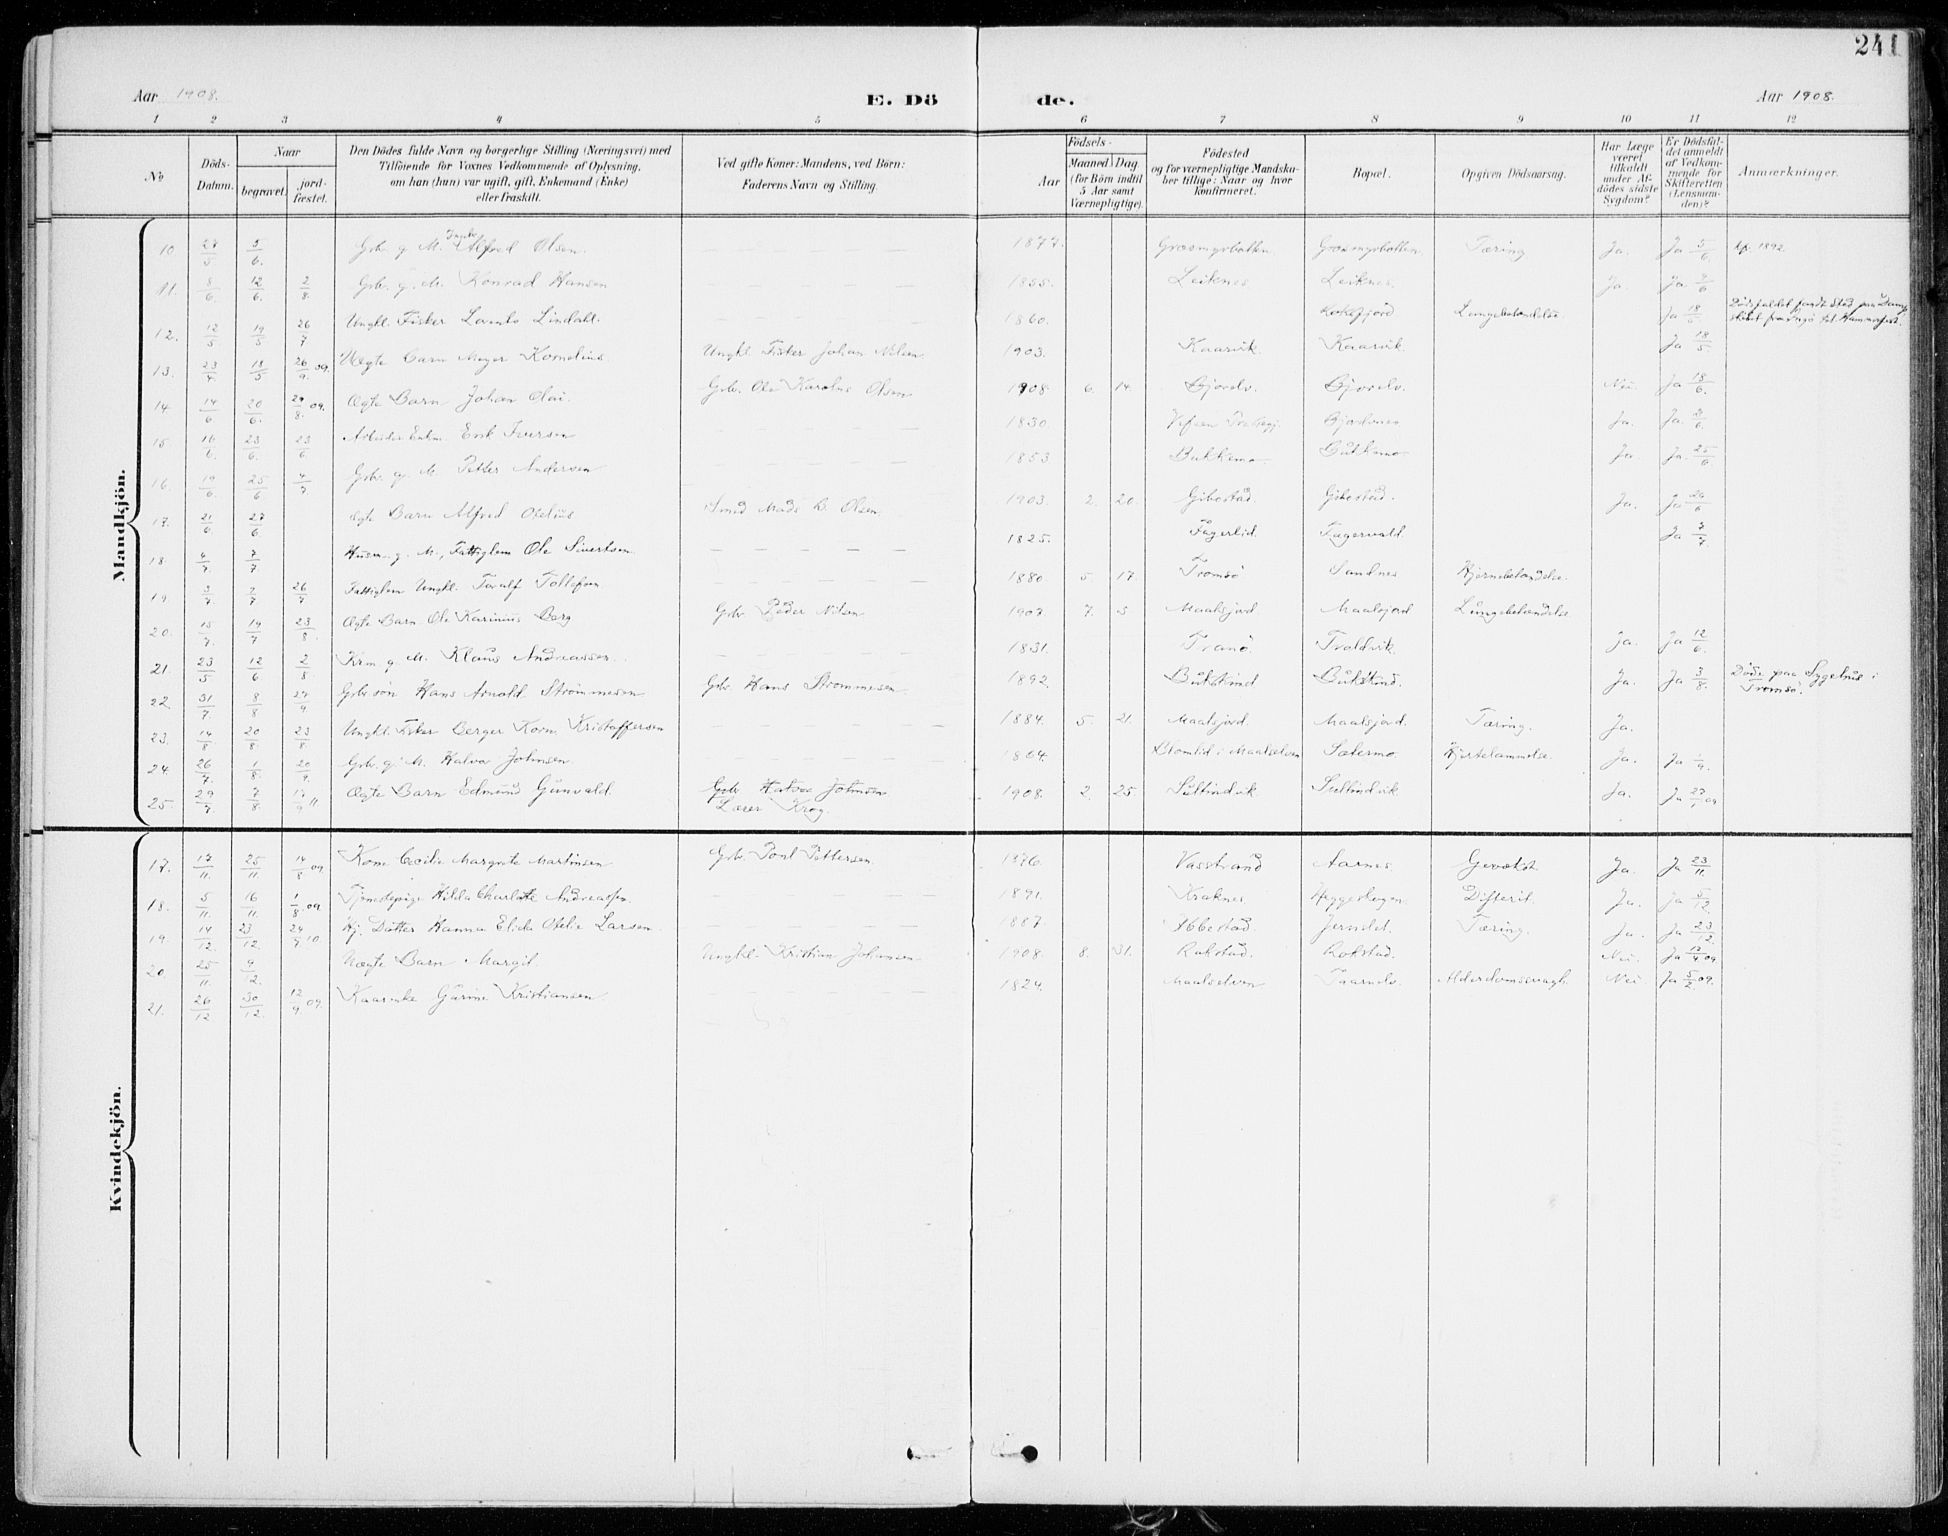 241
Aar 1908. E. Dö de. Aar 1908.
1 2 3 4 5 6 7 8 9 10 11 12
No
Döds-Datum.
Naar
begravet.
jord-fæstet.
Den Dödes fulde Navn og borgerlige Stilling (Næringsvei) med
Tilföiende for Voxnes Vedkommende af Oplysning,
om han (hun) var ugift, gift, Enkemand (Enke)
eller fraskilt.
Ved gifte Koner: Mandens, ved Börn:
Faderens Navn og Stilling.
Födsels-
Aar
Maaned Dag
(for Börn indtil
5 Aar samt
Værnepligtige).
Födested
og for værnepligtige Mandska-
ber tillige: Naar og hvor
konfirmeret.
Bopæl.
Opgiven Dödsaarsag.
Har Læge
været
tilkaldt
under Af-
dödes sidste
Sygdom?
Er Dödsfal-
det anmeldt
af Vedkom-
mende for
Skifteretten
(Lensman-
den)?
Anmærkninger.
Mandkjön.
10 27/5 5/6. Gbr. g. M. Alfred Olsen. 1877. Græsmyrbotten. Græsmyrbotten. Tæring Ja. Ja 5/6. 1892
11. 8/6 12/6. 2/8. Gbr. g. M. Konrad Hansen 1855. Leiknes. Leiknes. Ja. Ja 9/6
12. 12/5 19/5 26/7 Ungkl. Fisker Lindahl. 1860. Lungebetændelse Ja 18/5 Dödsfaldet fandt Sted paa Damp-
skibet fra til Hammerfest.
13. 23/4 18/5 26/9 09. Uægte Barn Meyer Kornelius. Ungkl. Fisker Johan Nilsen 1903. Kaarvik. Kaarvik. Ja 18/5.
14. 14/6 20/6. 29/8. 09. Ægte Barn Johan Olai. Gbr. Ole Karolus Olsen 1908. 6. 14. Gjorelv. Gjorelv. Nei. Ja 18/6.
15. 16/6. 23/6. 23/6 Arbeider Enkm. Erik Iversen 1830. Vefsen Ja. Ja. 9/6.
16. 19/6 25/6 4/7 Gbr. g. M. Petter Andersen 1853 Bukkemo. Bukkemo. Ja. Ja. 25/6
17. 21/6 27/6. Ægte Barn Alfred Otelius Smed Mads Olsen 1903. 2. 20. Gibostad. Gibostad. Ja. Ja 24/6
18. 4/7. 7/7 Husm. g. M., Fattiglem Ole Sivertsen. 1825. Fagerlid. Fagervold. Ja 7/7
19. 3/7 9/7 26/7 Fattiglem Ungkl. Toralf Tollefsen 1880. 5. 17. Tromsö Sandnes Hjernebetændelse.
20. 15/7. 19/7 23/8. Ægte Barn Ole Karinius Berg Gbr. Peder Nilsen 1907. 7. 5 Maalsjord Maalsjord Lungebetændelse
21. 23/5 12/6 2/8 Krm g. M. Klaus Andreassen. 1831. Tranö. Troldvik. Ja. Ja 12/6.
22. 31/7. 8/8 27/9 Gbr. sön Hans Arnold Strömmesen Gbr. Hans Strömmesen 1892. Bukskind Bukskind. Ja. Ja 3/8. Döde paa Sygehus i
Tromsö.
23. 14/8 20/8. 23/8. Ungkl. Fisker Berger Korn. Kristoffersen 1884. 5. 21. Maalsjord. Maalsjord. Tæring. Ja.
24. 26/7. 1/8 20/9. Gbr. g. M. Halvor Johnsen. 1864. i Maalselven Sætermo. Hjertelammelse. Ja. Ja 1/9.
25. 29/7 7/8 17/9 " Ægte Barn Edmund Gunvald. Gbr. Johnsen
Lærer Krog. 1908. 2. 25 Sultindvik Sultindvik Ja. Ja 27/1 09.
Kvindekjön.
17. 17/11. 25/11 14/8 09. Kone Cecilie Margrete Martinsen Gbr. Poul Pettersen. 1876. Vasstrand Aarnes. Ja. Ja 23/11.
18. 5/11. 16/11. 1/8 09 Tjenestepige Hilda Charlotte Andreassen. 1891. Kraknes. Difterit. Ja. Ja 5/12.
19. 14/12. 23/12. 24/7 10. Hj. Datter Hanna Elida Otelie Larsen. 1887. Ibbestad. Jernslet. Tæring. Ja. Ja 23/12.
20. 25/11. 9/12. Uægte Barn Margit. Ungkl. Kristian Johansen 1908. 8. 31. Rakstad. Rokstad. Nei. Ja 17/4 09.
21. 26/12 30/12. 12/9. 09. Kaarenke Gurine Kristiansen. 1824. Maalselven Taarnelv. Alderdomssvagh. Nei Ja 5/2. 09.